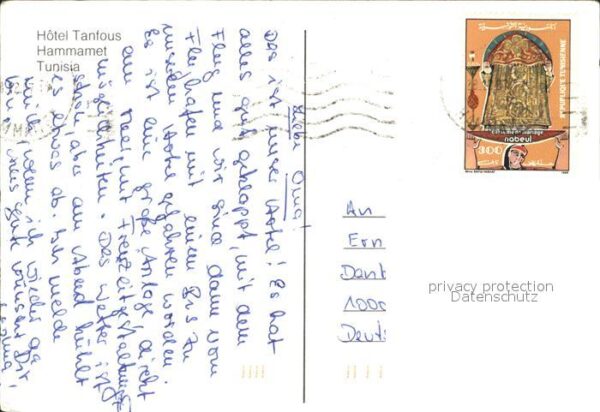 Hôtel Tanfous
Hammamet
Tunisia
Liebe Oma!
Das ist unser Hotel! Es hat
alles gut geklappt, mit dem
Flug und wir sind dann vom
Flughafen mit einem Bus zu
unserem Hotel gefahren worden.
Es ist eine große Anlage, direkt
am Meer, mit Freizeitgestaltungs-
möglichkeiten. Das Wetter ist
schön, aber am Abend kühlt
es etwas ab. Ich melde
mich, wenn ich wieder da
bin. Alles Gute wünscht Dir
REPUBLIQUE TUNISIENNE
nabeul
300
An
Ern
Dank
1000
Deut
privacy protection
Datenschutz